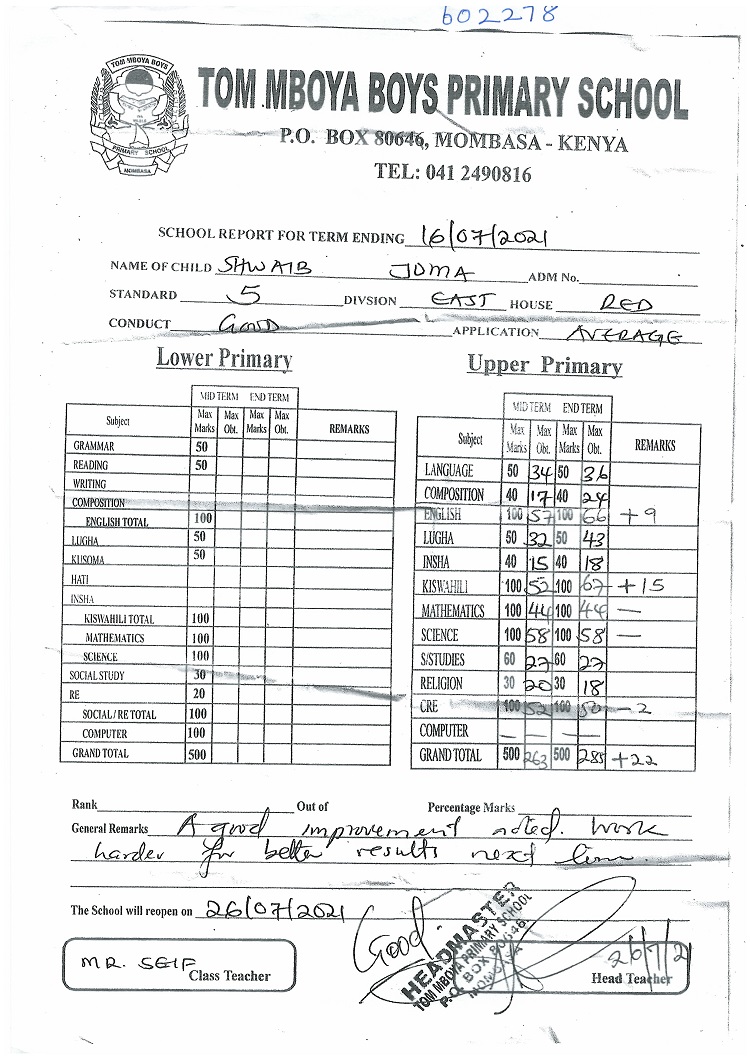 602278
TOM MBOYA BOYS
PRIMARY SCHOOL
MOMBASA
TOM MBOYA BOYS PRIMARY SCHOOL
P.O. BOX 80646, MOMBASA - KENYA
TEL: 041 2490816
SCHOOL REPORT FOR TERM ENDING 16/07/2021
NAME OF CHILD SHWAIB JUMA ADM No.
STANDARD 5 DIVSION EAST HOUSE RED
CONDUCT GOOD APPLICATION AVERAGE
Lower Primary
MID TERM END TERM
Subject Max Marks Max Obt. Max Marks Max Obt. REMARKS
GRAMMAR 50
READING 50
WRITING
COMPOSITION
ENGLISH TOTAL 100
LUGHA 50
KUSOMA 50
HATI
INSHA
KISWAHILI TOTAL 100
MATHEMATICS 100
SCIENCE 100
SOCIAL STUDY 30
RE 20
SOCIAL / RE TOTAL 100
COMPUTER 100
GRAND TOTAL 500
Upper Primary
MID TERM END TERM
Subject Max Marks Max Obt. Max Marks Max Obt. REMARKS
LANGUAGE 50 34 50 36
COMPOSITION 40 17 40 24
ENGLISH 100 57 100 66 +9
LUGHA 50 32 50 43
INSHA 40 15 40 18
KISWAHILI 100 52 100 67 +15
MATHEMATICS 100 44 100 44 —
SCIENCE 100 58 100 58 —
S/STUDIES 60 27 60 27
RELIGION 30 20 30 18
CRE 100 52 100 50 -2
COMPUTER — — — —
GRAND TOTAL 500 263 500 285 +22
Rank Out of Percentage Marks
General Remarks A good improvement noted. Work
harder for better results next term.
The School will reopen on 26/07/2021
Good.
HEADMASTER
TOM MBOYA PRIMARY SCHOOL
P.O. BOX 80646
MOMBASA
MR. SEIF Class Teacher
26/7/21
Head Teacher